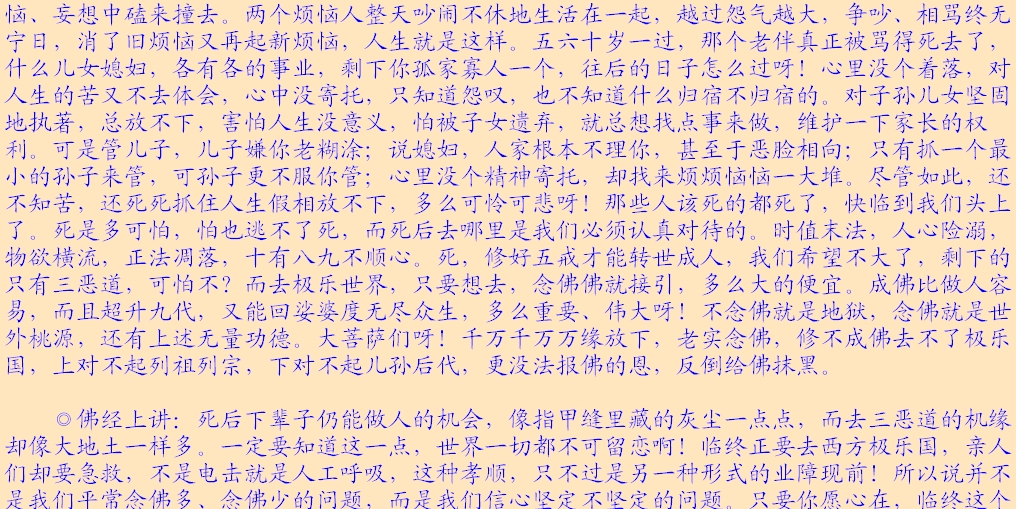 恼、妄想中磕来撞去。两个烦恼人整天吵闹不休地生活在一起，越过怨气越大，争吵、相骂终无
宁日，消了旧烦恼又再起新烦恼，人生就是这样。五六十岁一过，那个老伴真正被骂得死去了，
什么儿女媳妇，各有各的事业，剩下你孤家寡人一个，往后的日子怎么过呀！心里没个着落，对
人生的苦又不去体会，心中没寄托，只知道怨叹，也不知道什么归宿不归宿的。对子孙儿女坚固
地执著，总放不下，害怕人生没意义，怕被子女遗弃，就总想找点事来做，维护一下家长的权
利。可是管儿子，儿子嫌你老糊涂；说媳妇，人家根本不理你，甚至于恶脸相向；只有抓一个最
小的孙子来管，可孙子更不服你管；心里没个精神寄托，却找来烦烦恼恼一大堆。尽管如此，还
不知苦，还死死抓住人生假相放不下，多么可怜可悲呀！那些人该死的都死了，快临到我们头上
了。死是多可怕，怕也逃不了死，而死后去哪里是我们必须认真对待的。时值末法，人心险溺，
物欲横流，正法凋落，十有八九不顺心。死，修好五戒才能转世成人，我们希望不大了，剩下的
只有三恶道，可怕不？而去极乐世界，只要想去，念佛佛就接引，多么大的便宜。成佛比做人容
易，而且超升九代，又能回娑婆度无尽众生，多么重要、伟大呀！不念佛就是地狱，念佛就是世
外桃源，还有上述无量功德。大菩萨们呀！千万千万万缘放下，老实念佛，修不成佛去不了极乐
国，上对不起列祖列宗，下对不起儿孙后代，更没法报佛的恩，反倒给佛抹黑。
◎佛经上讲：死后下辈子仍能做人的机会，像指甲缝里藏的灰尘一点点，而去三恶道的机缘
却像大地土一样多。一定要知道这一点，世界一切都不可留恋啊！临终正要去西方极乐国，亲人
们却要急救，不是电击就是人工呼吸，这种孝顺，只不过是另一种形式的业障现前！所以说并不
是我们平常念佛多、念佛少的问题，而是我们信心坚定不坚定的问题。只要你愿心在，临终这个